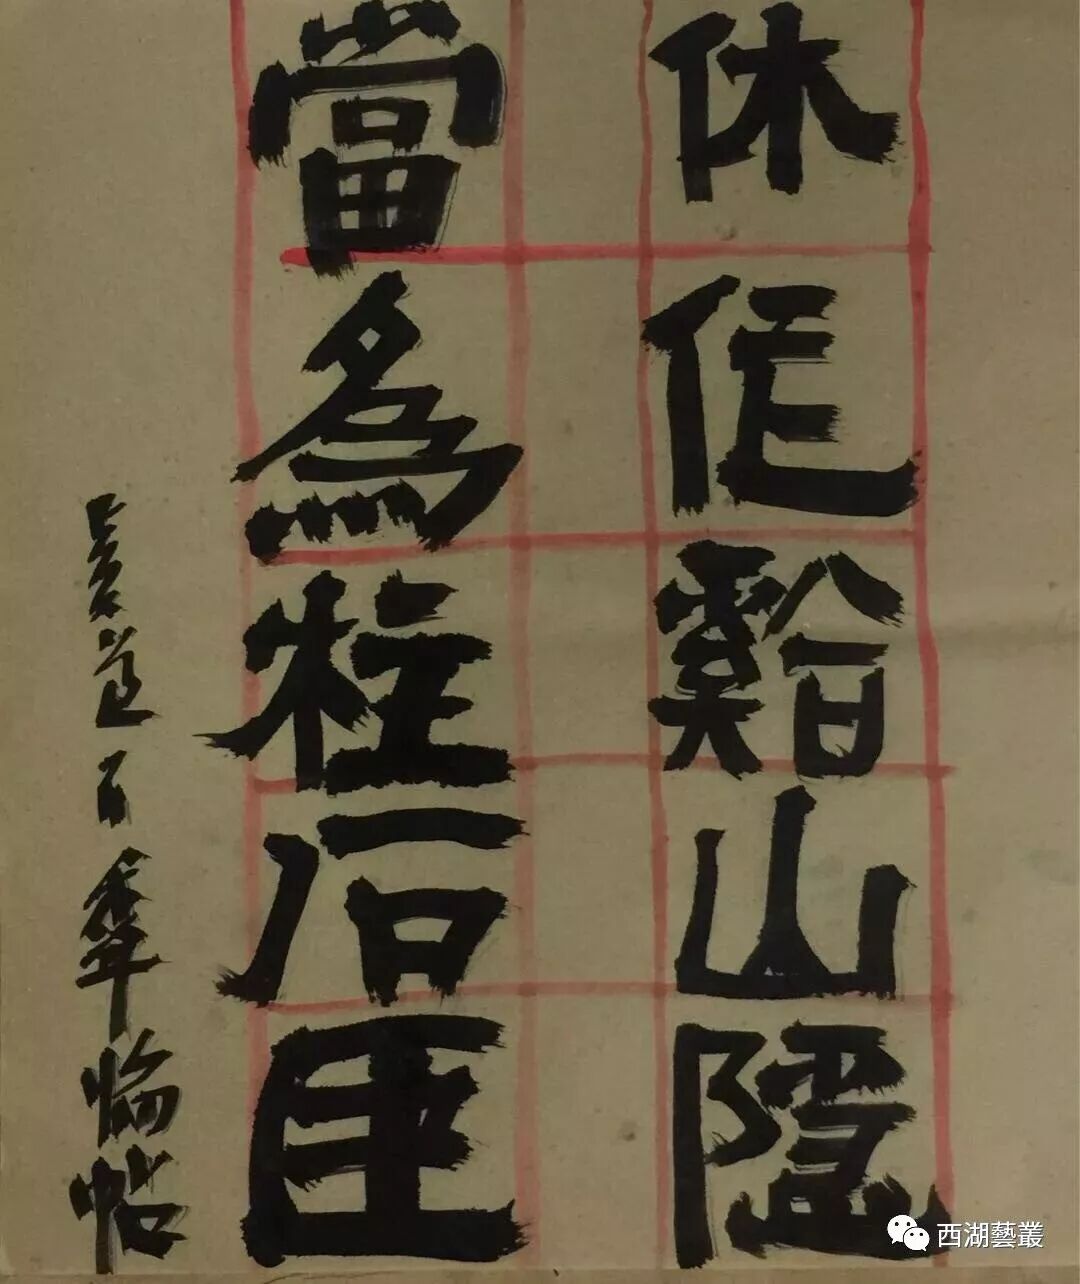 休作谿山隱
當為柱石臣
黄道百年臨帖
西湖藝叢